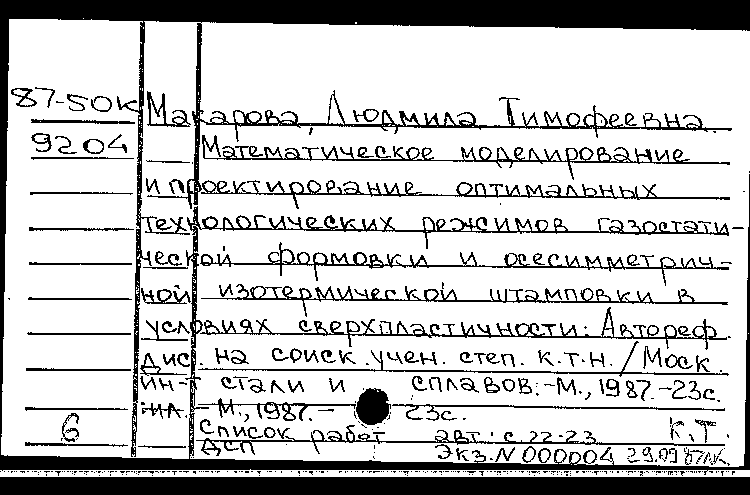 87-50к Макарова, Людмила Тимофеевна
9204 Математическое моделирование
и проектирование оптимальных
технологических режимов газостати-
ческой формовки и осесимметрич-
ной изотермической штамповки в
условиях сверхпластичности: Автореф.
дис. на соиск. учен. степ. к.т.н. / Моск.
ин-т стали и сплавов. - М., 1987. - 23с.
ил. - М., 1987. - 23с.
6 Список работ авт.: с. 22-23 К.Т.
ДСП Экз. N 000004 29.09.87